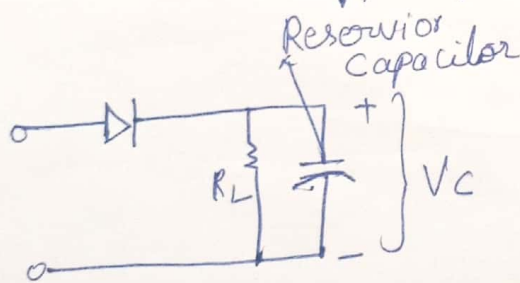 Reservior
Capacitor
+
RL
VC
-